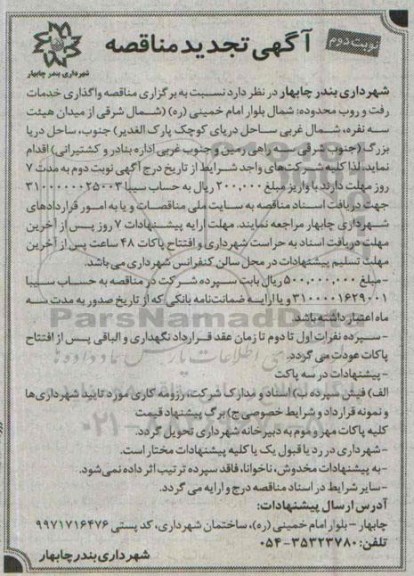 نوبت دوم
آگهی تجدید مناقصه
شهرداری بندر چابهار
شهرداری بندر چابهار در نظر دارد نسبت به برگزاری مناقصه واگذاری خدمات
رفت و روب محدوده: شمال بلوار امام خمینی (ره) (شمال شرقی از میدان هیئت
سه نفره، شمال غربی ساحل دریای کوچک پارک الغدیر) جنوب، ساحل دریا
بزرگ (جنوب شرقی سه راهی رمین و جنوب غربی اداره بنادر و کشتیرانی) اقدام
نماید. لذا کلیه شرکت‌های واجد شرایط از تاریخ درج آگهی نوبت دوم به مدت ۷
روز مهلت دارند با واریز مبلغ ۲۰۰,۰۰۰ ریال به حساب سیبا ۳۱۰۰۰۰۰۰۲۵۰۰۳
جهت دریافت اسناد مناقصه به سایت ملی مناقصات و یا به امور قراردادهای
شهرداری چابهار مراجعه نمایند. مهلت ارایه پیشنهادات ۷ روز پس از آخرین
مهلت دریافت اسناد به حراست شهرداری و افتتاح پاکات ۴۸ ساعت پس از آخرین
مهلت تسلیم پیشنهادات در محل سالن کنفرانس شهرداری می‌باشد.
-مبلغ ۵۰۰,۰۰۰,۰۰۰ ریال بابت سپرده شرکت در مناقصه به حساب سیبا
۳۱۰۰۰۰۱۶۲۹۰۰۱ و یا ارایه ضمانت‌نامه بانکی که از تاریخ صدور به مدت سه
ماه اعتبار داشته باشد
-سپرده نفرات اول تا دوم تا زمان عقد قرارداد نگهداری و الباقی پس از افتتاح
پاکات عودت می گردد.
-پیشنهادات در سه پاکت
الف) فیش سپرده ب) اسناد و مدارک شرکت، رزومه کاری مورد تایید شهرداری‌ها
و نمونه قرارداد و شرایط خصوصی ج) برگ پیشنهاد قیمت
کلیه پاکات مهر و موم به دبیرخانه شهرداری تحویل گردد.
-شهرداری در رد یا قبول یک یا کلیه پیشنهادات مختار است.
-به پیشنهادات مخدوش، ناخوانا، فاقد سپرده ترتیب اثر داده نمی‌شود.
-سایر شرایط در اسناد مناقصه درج و ارایه می گردد.
آدرس ارسال پیشنهادات:
چابهار - بلوار امام خمینی (ره)، ساختمان شهرداری، کد پستی ۹۹۷۱۷۱۶۴۷۶
تلفن: ۳۵۳۲۳۷۸۰-۰۵۴
شهرداری بندر چابهار
ParsNamadData